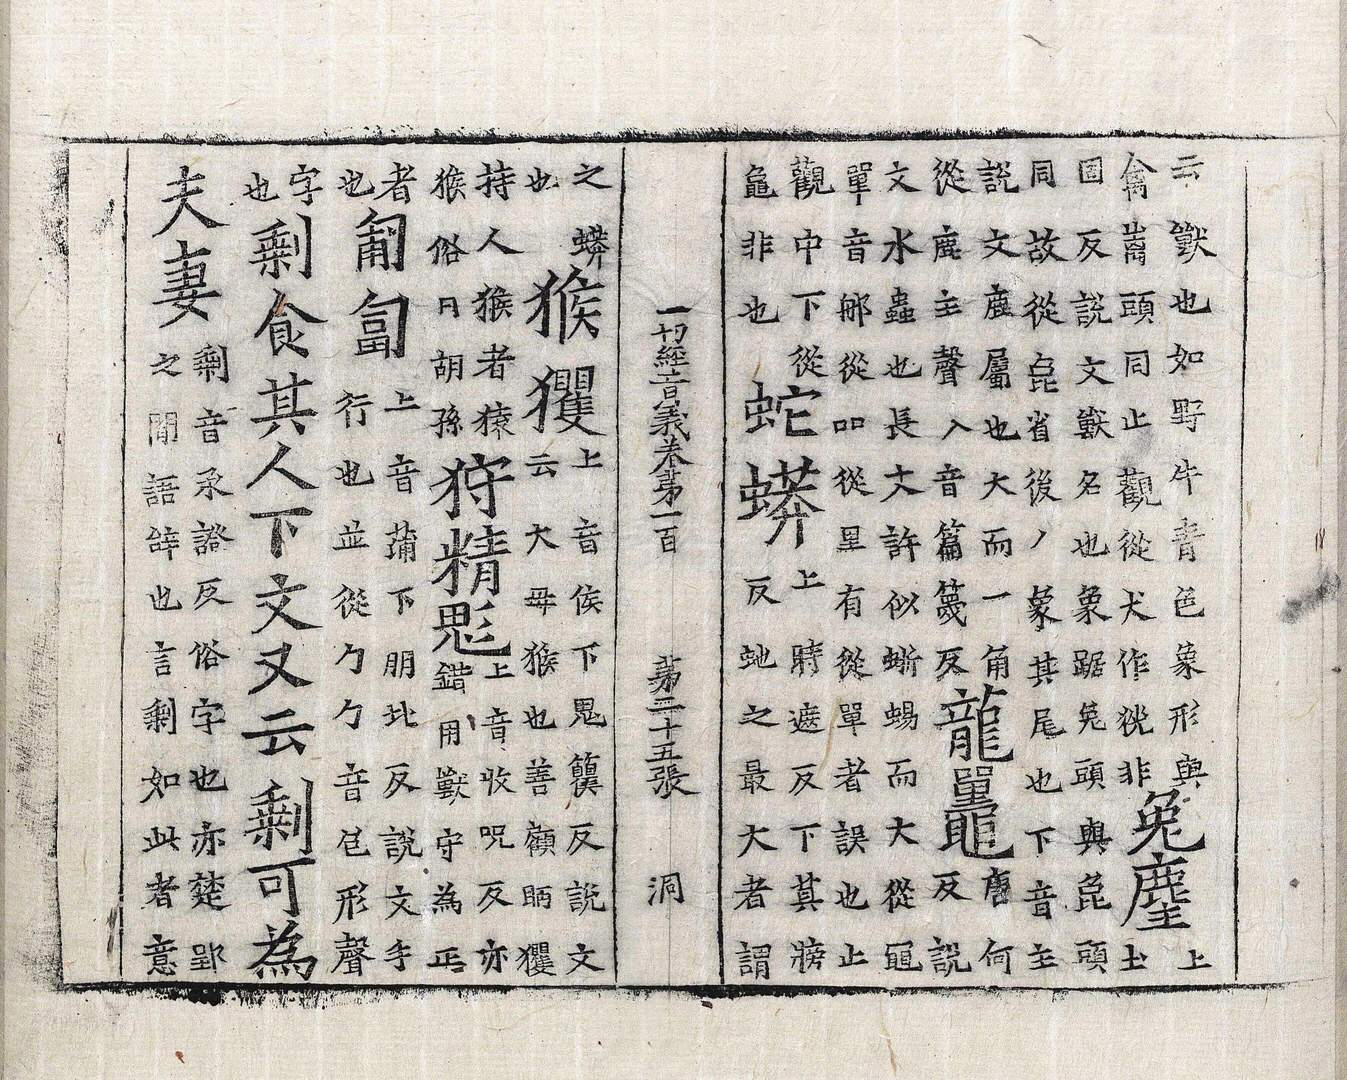 云獸也如野牛青色象形與
禽嵩頭同止觀從犬作㹸非
兔麈
上
固反說文獸名也象踞兔頭與㲋頭
同故從㲋省後丿象其尾也下音主
說文麈屬也大而一角
從鹿主聲入音篇篾反
龍鼉
唐何
反說
文水蟲也長丈許似蜥蜴而大從黽
單音那從吅從里有從單者誤也止
觀中下從
龜非也
蛇蟒
上時遮反下莫牓
反虵之最大者謂
一切經音義卷第一百 第三十五張 洞
之蟒
也
猴玃
上音侯下籰反說文
云大母猴也善顧眄玃
持人猴者猿
猴俗曰胡孫
狩精鬽
上音收呪反亦
錯用獸守為正
者
也
匍匐
上音蒲下朋北反說文手
行也並從勹勹音包形聲
字
也
剩食其人下文又云剩可為
夫妻
剩音承證反俗字也亦楚郢
之閒語辭也言剩如此者意